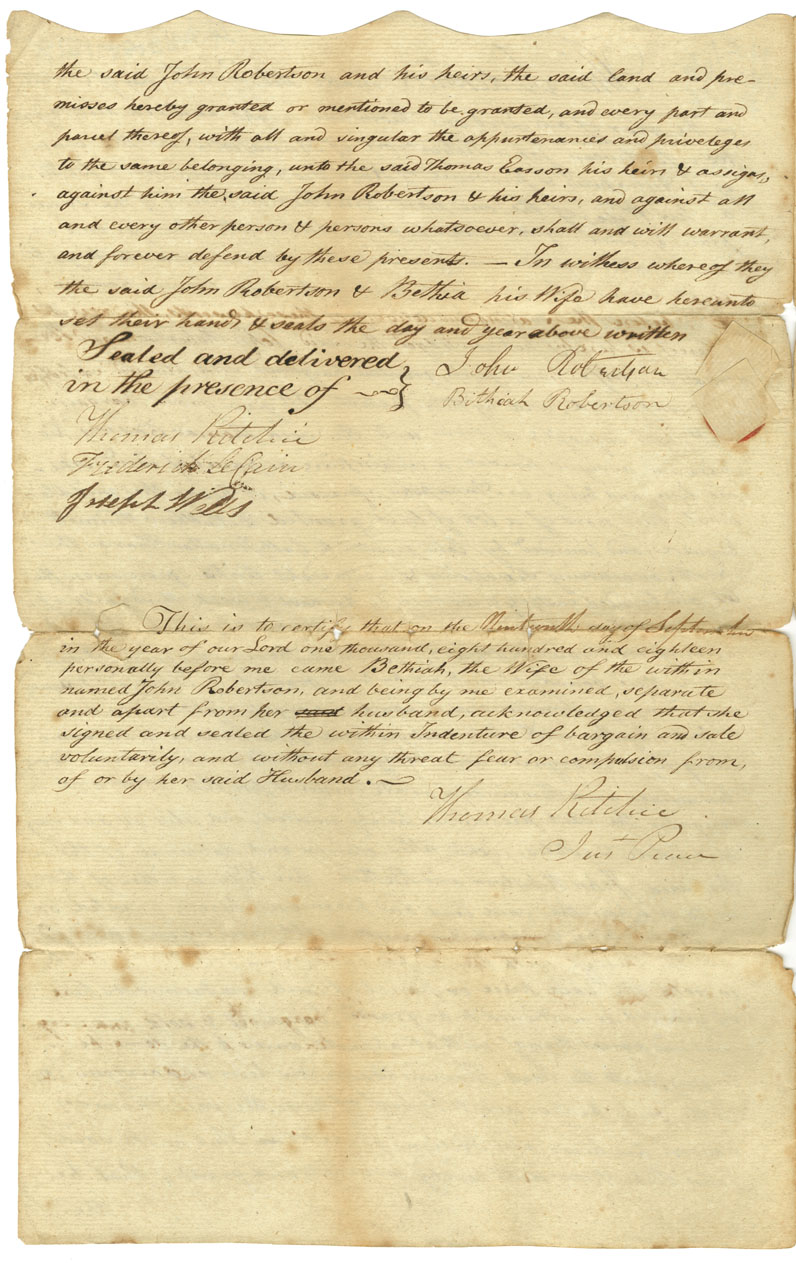 the said John Robertson and his heirs, the said land and pre-
misses hereby granted or mentioned to be granted, and every part and
parcel thereof, with all and singular the appurtenances and priveleges
to the same belonging, unto the said Thomas Easson his heirs & assigns,
against him the said John Robertson & his heirs, and against all
and every other person & persons whatsoever, shall and will warrant,
and forever defend by these presents. — In witness whereof they
the said John Robertson & Bethia his Wife have hereunto
set their hands & seals the day and year above written
Sealed and delivered
in the presence of
John Robertson
Bithiah Robertson
Thomas Ritchie
Frederick LeCain
Joseph Wells
This is to certify that on the Ninteenth day of September
in the year of our Lord one thousand, eight hundred and eighteen
personally before me came Bethiah, the Wife of the within
named John Robertson, and being by me examined, separate
and apart from her said husband, acknowledged that she
signed and sealed the within Indenture of bargain and sale
voluntarily, and without any threat fear or compulsion from,
of or by her said Husband. —
Thomas Ritchie
Just Peace